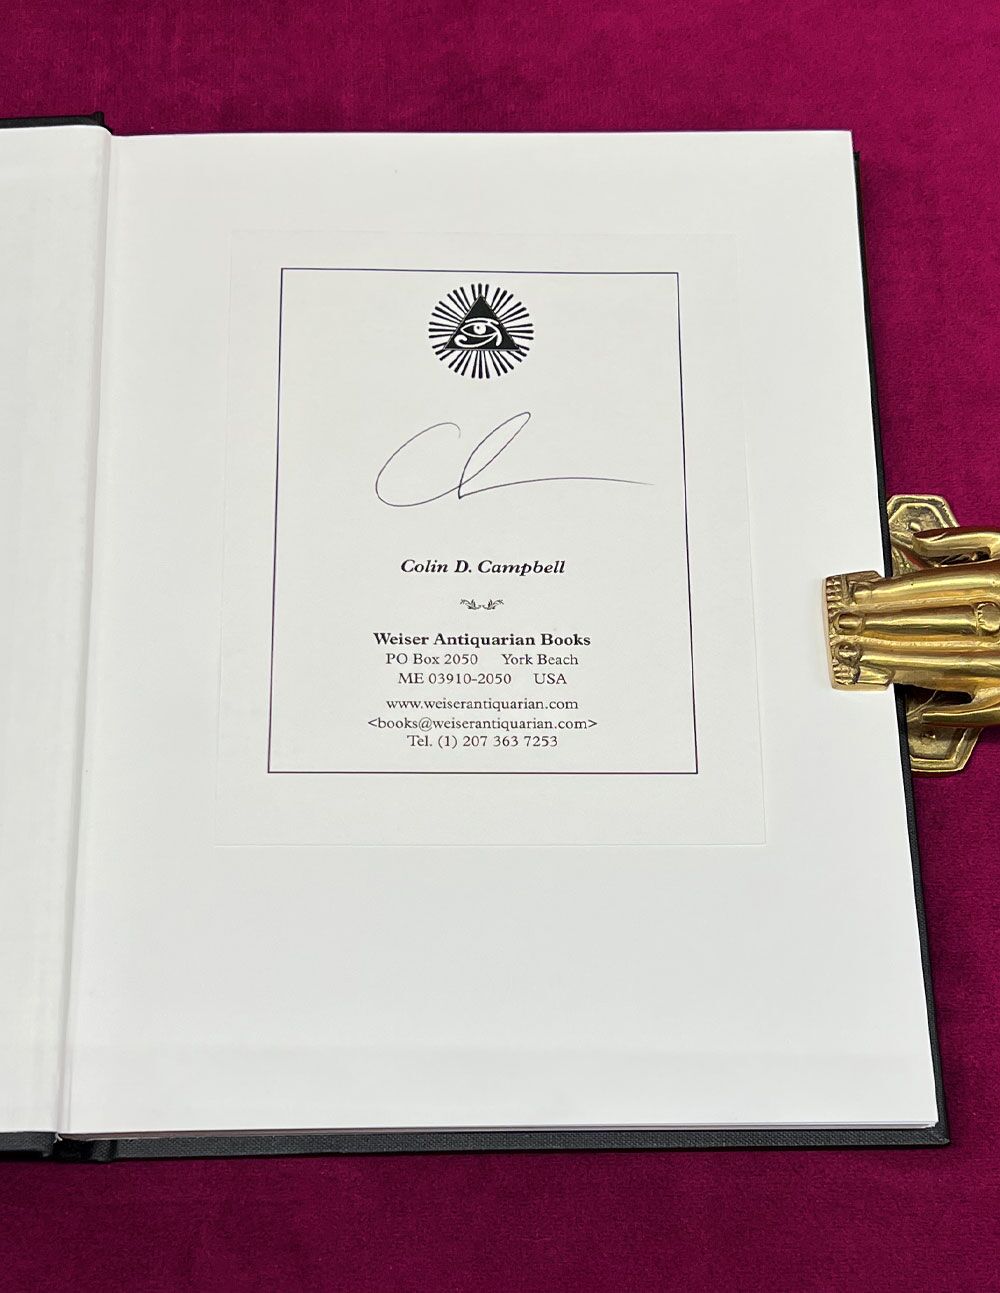 Colin D. Campbell
Weiser Antiquarian Books
PO Box 2050 York Beach
ME 03910-2050 USA
www.weiserantiquarian.com
<books@weiserantiquarian.com>
Tel. (1) 207 363 7253